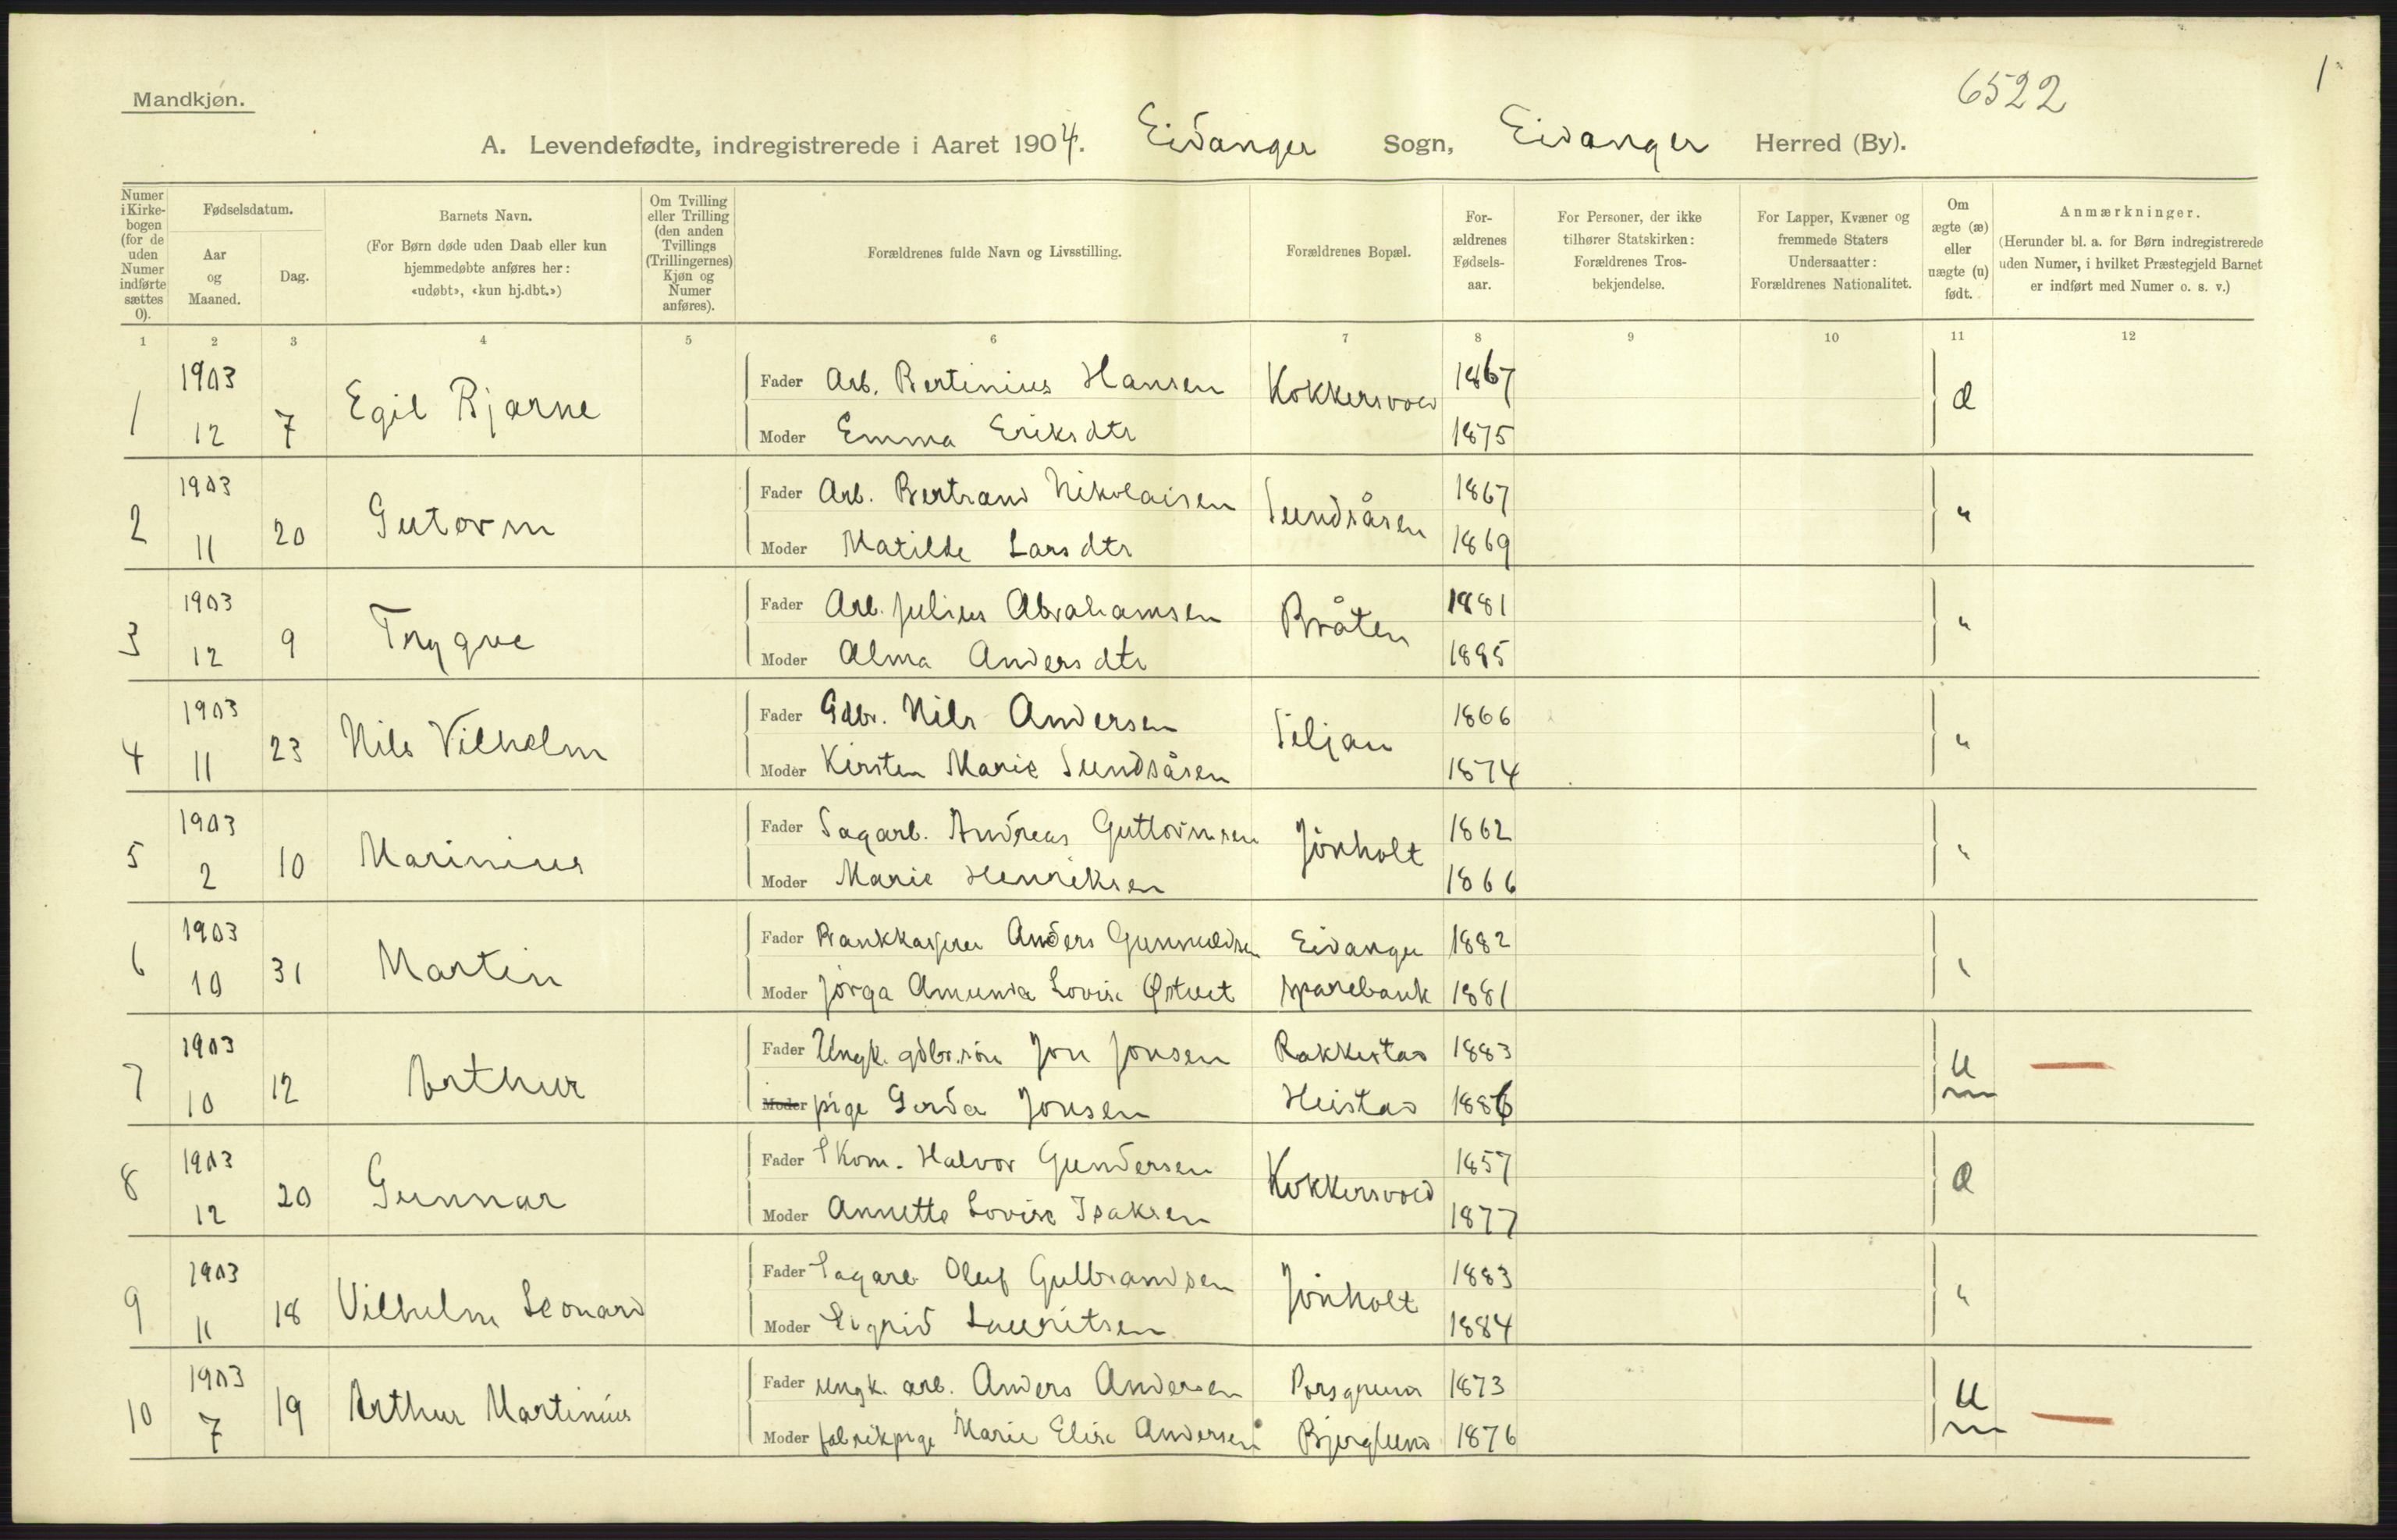 6522
1
Mandkjøn.
A. Levendefødte, indregistrerede i Aaret 1904. Eidanger Sogn, Eidanger Herred (By).
Numer i Kirke-bogen (for de uden Numer indførte sættes 0).
Fødselsdatum.
Aar og Maaned.
Dag.
Barnets Navn.
(For Børn døde uden Daab eller kun hjemmedøbte anføres her: «udøbt», «kun hj.dbt.»)
Om Tvilling eller Trilling (den anden Tvillings (Trillingernes) Kjøn og Numer anføres).
Forældrenes fulde Navn og Livsstilling.
Forældrenes Bopæl.
For-ældrenes Fødsels-aar.
For Personer, der ikke tilhører Statskirken: Forældrenes Tros-bekjendelse.
For Lapper, Kvæner og fremmede Staters Undersaatter: Forældrenes Nationalitet.
Om ægte (æ) eller uægte (u) født.
Anmærkninger.
(Herunder bl. a. for Børn indregistrerede uden Numer, i hvilket Præstegjeld Barnet er indført med Numer o. s. v.)
1 2 3 4 5 6 7 8 9 10 11 12
1 1903 12 7 Egil Bjarne Fader Arb. Bertinius Hansen Kokkersvold 1867 æ
Moder Emma Eriksdtr 1875
2 1903 11 20 Gutorm Fader Arb. Bertrand Nikolaisen Sundsåsen 1867 "
Moder Matilde Larsdtr 1869
3 1903 12 9 Trygve Fader Arb. Julius Abrahamsen Bråten 1881 "
Moder Alma Andersdtr 1885
4 1903 11 23 Nils Vilhelm Fader Gdbr. Nils Andersen Siljan 1866 "
Moder Kirsten Marie Sundsåsen 1874
5 1903 2 10 Marinius Fader Sagarb. Andreas Guttormsen Jønholt 1862 "
Moder Marie Henriksen 1866
6 1903 10 31 Martin Fader Bankkasserer Anders Gunnuldsen Eidanger 1882 "
Moder Jørga Amunda Lovise Østvet sparebank 1881
7 1903 10 12 Arthur Fader Ungk. gdbr.søn Jon Jonsen Rakkestad 1883 U
Moder pige Gerda Jonsen Heistad 1886
8 1903 12 20 Gunnar Fader Skom. Halvor Gundersen Kokkersvold 1857 æ
Moder Annette Lovise Isaksen 1877
9 1903 11 18 Vilhelm Leonard Fader Sagarb Oluf Gulbrandsen Jønholt 1883 "
Moder Sigrid Lauritsen 1884
10 1903 7 19 Arthur Martinius Fader Ungk. arb. Anders Andersen Porsgrund 1873 U
Moder fabrikpige Marie Elise Andersen Bjerglund 1876